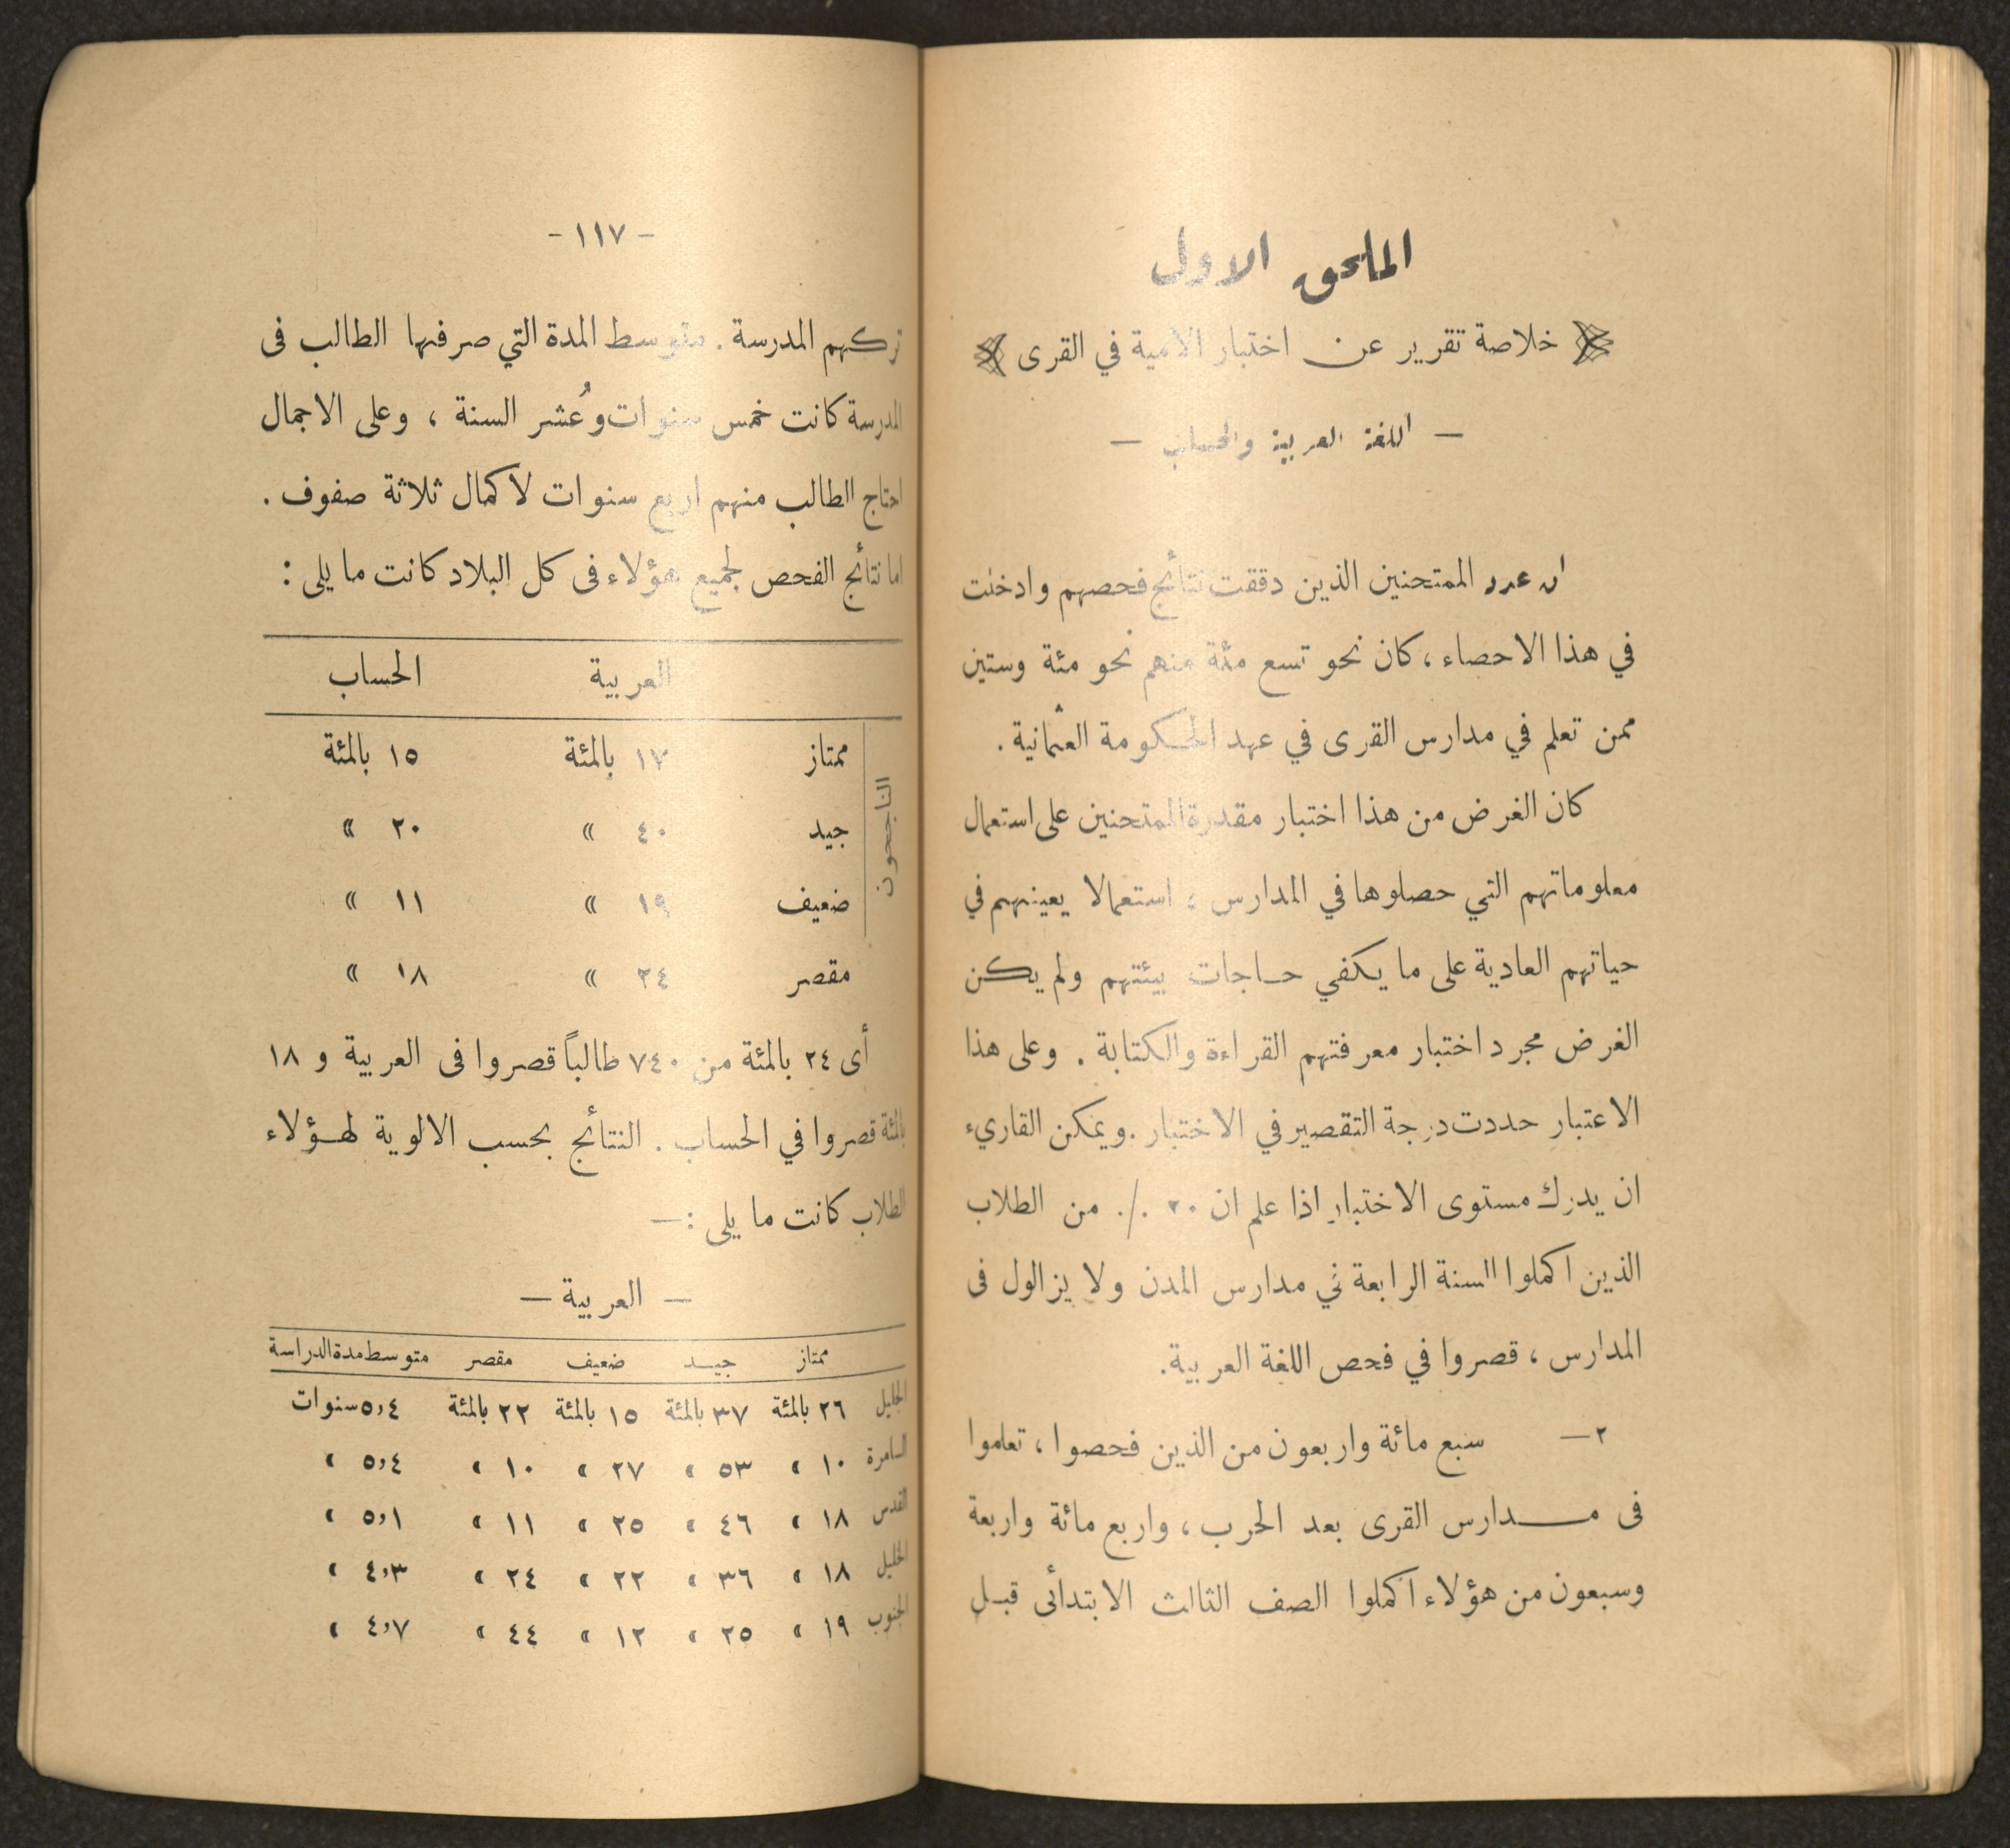 الملحق الاول
خلاصة تقرير عن اختبار الامية في القرى
— اللغة العربية والحساب —
ان عدد الممتحنين الذين دققت نتائج فحصهم وادخلت
في هذا الاحصاء، كان نحو تسع مئة منهم نحو مئة وستين
ممن تعلم في مدارس القرى في عهد الحكومة العثمانية.
كان الغرض من هذا اختبار مقدرة الممتحنين على استعمال
معلوماتهم التي حصلوها في المدارس، استعمالا يعينهم في
حياتهم العادية على ما يكفي حاجات بيئتهم ولم يكن
الغرض مجرد اختبار معرفتهم القراءة والكتابة. وعلى هذا
الاعتبار حددت درجة التقصير في الاختبار. ويمكن القاريء
ان يدرك مستوى الاختبار اذا علم ان ٢٠ ٪ من الطلاب
الذين اكملوا السنة الرابعة في مدارس المدن ولا يزالول فى
المدارس، قصروا في فحص اللغة العربية.
٢— سبع مائة واربعون من الذين فحصوا، تعلموا
فى مدارس القرى بعد الحرب، واربع مائة واربعة
وسبعون من هؤلاء اكملوا الصف الثالث الابتدائى قبل
- ١١٧ -
تركهم المدرسة. متوسط المدة التي صرفها الطالب فى
المدرسة كانت خمس سنوات وعُشر السنة، وعلى الاجمال
احتاج الطالب منهم اربع سنوات لاكمال ثلاثة صفوف.
اما نتائج الفحص لجميع هؤلاء فى كل البلاد كانت ما يلى:
العربية الحساب
الناجحون
ممتاز ١٧ بالمئة ١٥ بالمئة
جيد ٤٠ » ٢٠ »
ضعيف ١٩ » ١١ »
مقصر ٢٤ » ١٨ »
أى ٢٤ بالمئة من ٧٤٠ طالباً قصروا فى العربية و ١٨
بالمئة قصروا في الحساب. النتائج بحسب الالوية لهؤلاء
الطلاب كانت ما يلى:—
— العربية —
ممتاز جيد ضعيف مقصر متوسط مدة الدراسة
الجليل ٢٦ بالمئة ٣٧ بالمئة ١٥ بالمئة ٢٢ بالمئة ٥,٤ سنوات
السامرة ١٠ » ٥٣ » ٢٧ » ١٠ » ٥,٤ »
القدس ١٨ » ٤٦ » ٢٥ » ١١ » ٥,١ »
الخليل ١٨ » ٣٦ » ٢٢ » ٢٤ » ٤,٣ »
الجنوب ١٩ » ٢٥ » ١٢ » ٤٤ » ٤,٧ »